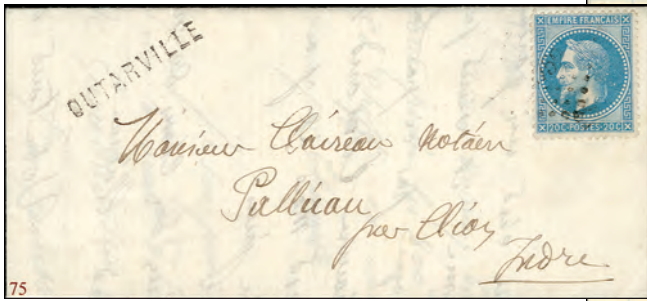 OUTARVILLE
EMPIRE FRANÇAIS
20C·POSTES·20C
Monsieur Claireau Notaire
Palluau
par Clion
Indre
75